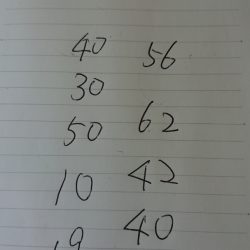 40 56
30
50 62
10 42
19 40